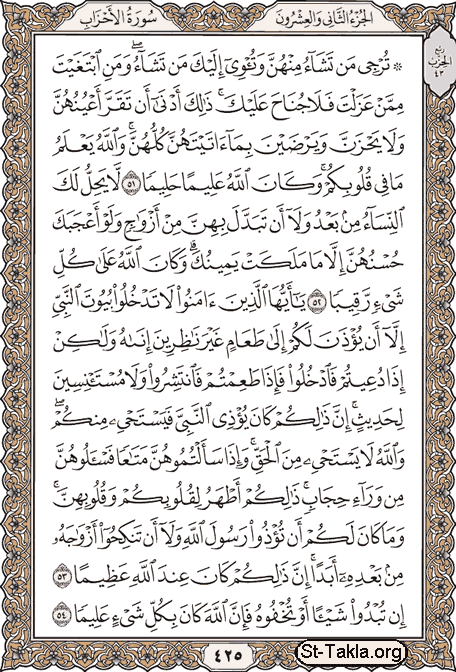 الجزء الثاني والعشرون
سورة الأحزاب
ربع
الحزب
٤٣
۞ تُرْجِى مَن تَشَآءُ مِنْهُنَّ وَتُـْٔوِىٓ إِلَيْكَ مَن تَشَآءُ ۖ وَمَنِ ٱبْتَغَيْتَ
مِمَّنْ عَزَلْتَ فَلَا جُنَاحَ عَلَيْكَ ۚ ذَٰلِكَ أَدْنَىٰٓ أَن تَقَرَّ أَعْيُنُهُنَّ
وَلَا يَحْزَنَّ وَيَرْضَيْنَ بِمَآ ءَاتَيْتَهُنَّ كُلُّهُنَّ ۚ وَٱللَّهُ يَعْلَمُ
مَا فِى قُلُوبِكُمْ ۚ وَكَانَ ٱللَّهُ عَلِيمًا حَلِيمًا ٥١ لَّا يَحِلُّ لَكَ
ٱلنِّسَآءُ مِنۢ بَعْدُ وَلَآ أَن تَبَدَّلَ بِهِنَّ مِنْ أَزْوَٰجٍ وَلَوْ أَعْجَبَكَ
حُسْنُهُنَّ إِلَّا مَا مَلَكَتْ يَمِينُكَ ۗ وَكَانَ ٱللَّهُ عَلَىٰ كُلِّ
شَىْءٍ رَّقِيبًا ٥٢ يَـٰٓأَيُّهَا ٱلَّذِينَ ءَامَنُوا۟ لَا تَدْخُلُوا۟ بُيُوتَ ٱلنَّبِىِّ
إِلَّآ أَن يُؤْذَنَ لَكُمْ إِلَىٰ طَعَامٍ غَيْرَ نَـٰظِرِينَ إِنَىٰهُ وَلَـٰكِنْ
إِذَا دُعِيتُمْ فَٱدْخُلُوا۟ فَإِذَا طَعِمْتُمْ فَٱنتَشِرُوا۟ وَلَا مُسْتَـْٔنِسِينَ
لِحَدِيثٍ ۚ إِنَّ ذَٰلِكُمْ كَانَ يُؤْذِى ٱلنَّبِىَّ فَيَسْتَحْىِۦ مِنكُمْ ۖ
وَٱللَّهُ لَا يَسْتَحْىِۦ مِنَ ٱلْحَقِّ ۚ وَإِذَا سَأَلْتُمُوهُنَّ مَتَـٰعًا فَسْـَٔلُوهُنَّ
مِن وَرَآءِ حِجَابٍ ۚ ذَٰلِكُمْ أَطْهَرُ لِقُلُوبِكُمْ وَقُلُوبِهِنَّ ۚ
وَمَا كَانَ لَكُمْ أَن تُؤْذُوا۟ رَسُولَ ٱللَّهِ وَلَآ أَن تَنكِحُوٓا۟ أَزْوَٰجَهُۥ
مِنۢ بَعْدِهِۦٓ أَبَدًا ۚ إِنَّ ذَٰلِكُمْ كَانَ عِندَ ٱللَّهِ عَظِيمًا ٥٣
إِن تُبْدُوا۟ شَيْـًٔا أَوْ تُخْفُوهُ فَإِنَّ ٱللَّهَ كَانَ بِكُلِّ شَىْءٍ عَلِيمًا ٥٤
٤٢٥
St-Takla.org